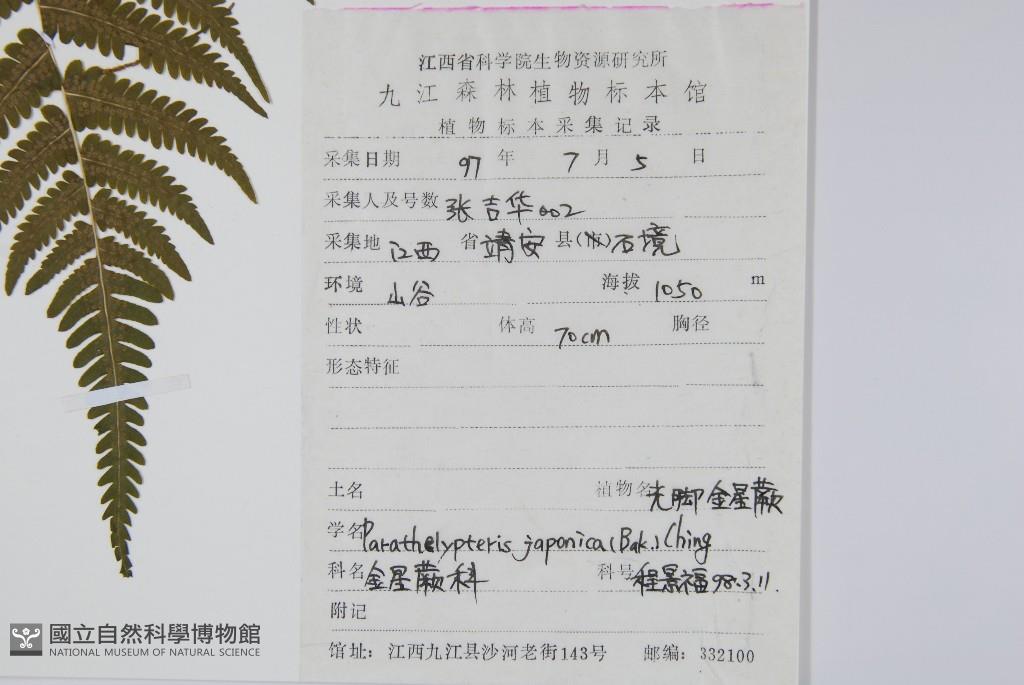 江西省科学院生物资源研究所
九江森林植物标本馆
植物标本采集记录
采集日期 97 年 7 月 5 日
采集人及号数 张吉华002
采集地 江西 省 靖安 县(市)石境
环境 山谷 海拔 1050 m
性状 体高 70cm 胸径
形态特征
土名 植物名 光脚金星蕨
学名 Parathelypteris japonica (Bak.) Ching
科名 金星蕨科 科号 程景福 98.3.11.
附记
馆址：江西九江县沙河老街143号 邮编：332100
國立自然科學博物館
NATIONAL MUSEUM OF NATURAL SCIENCE